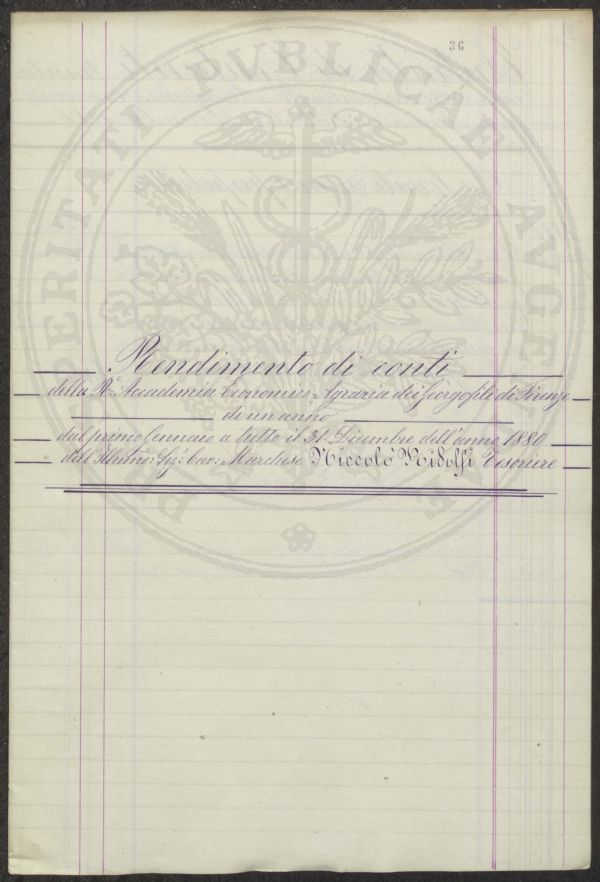 36
Rendimento di conti
della Rᵉ Accademia Economico-Agraria dei Georgofili di Firenze
di un anno
dal primo Gennaio a tutto il 31. Dicembre dell'anno 1880
dell'Illustmo: Sigʳ. Cav: Marchese Niccolò Ridolfi Tesoriere
PROSPERITATI PVBLICAE AVGENDAE